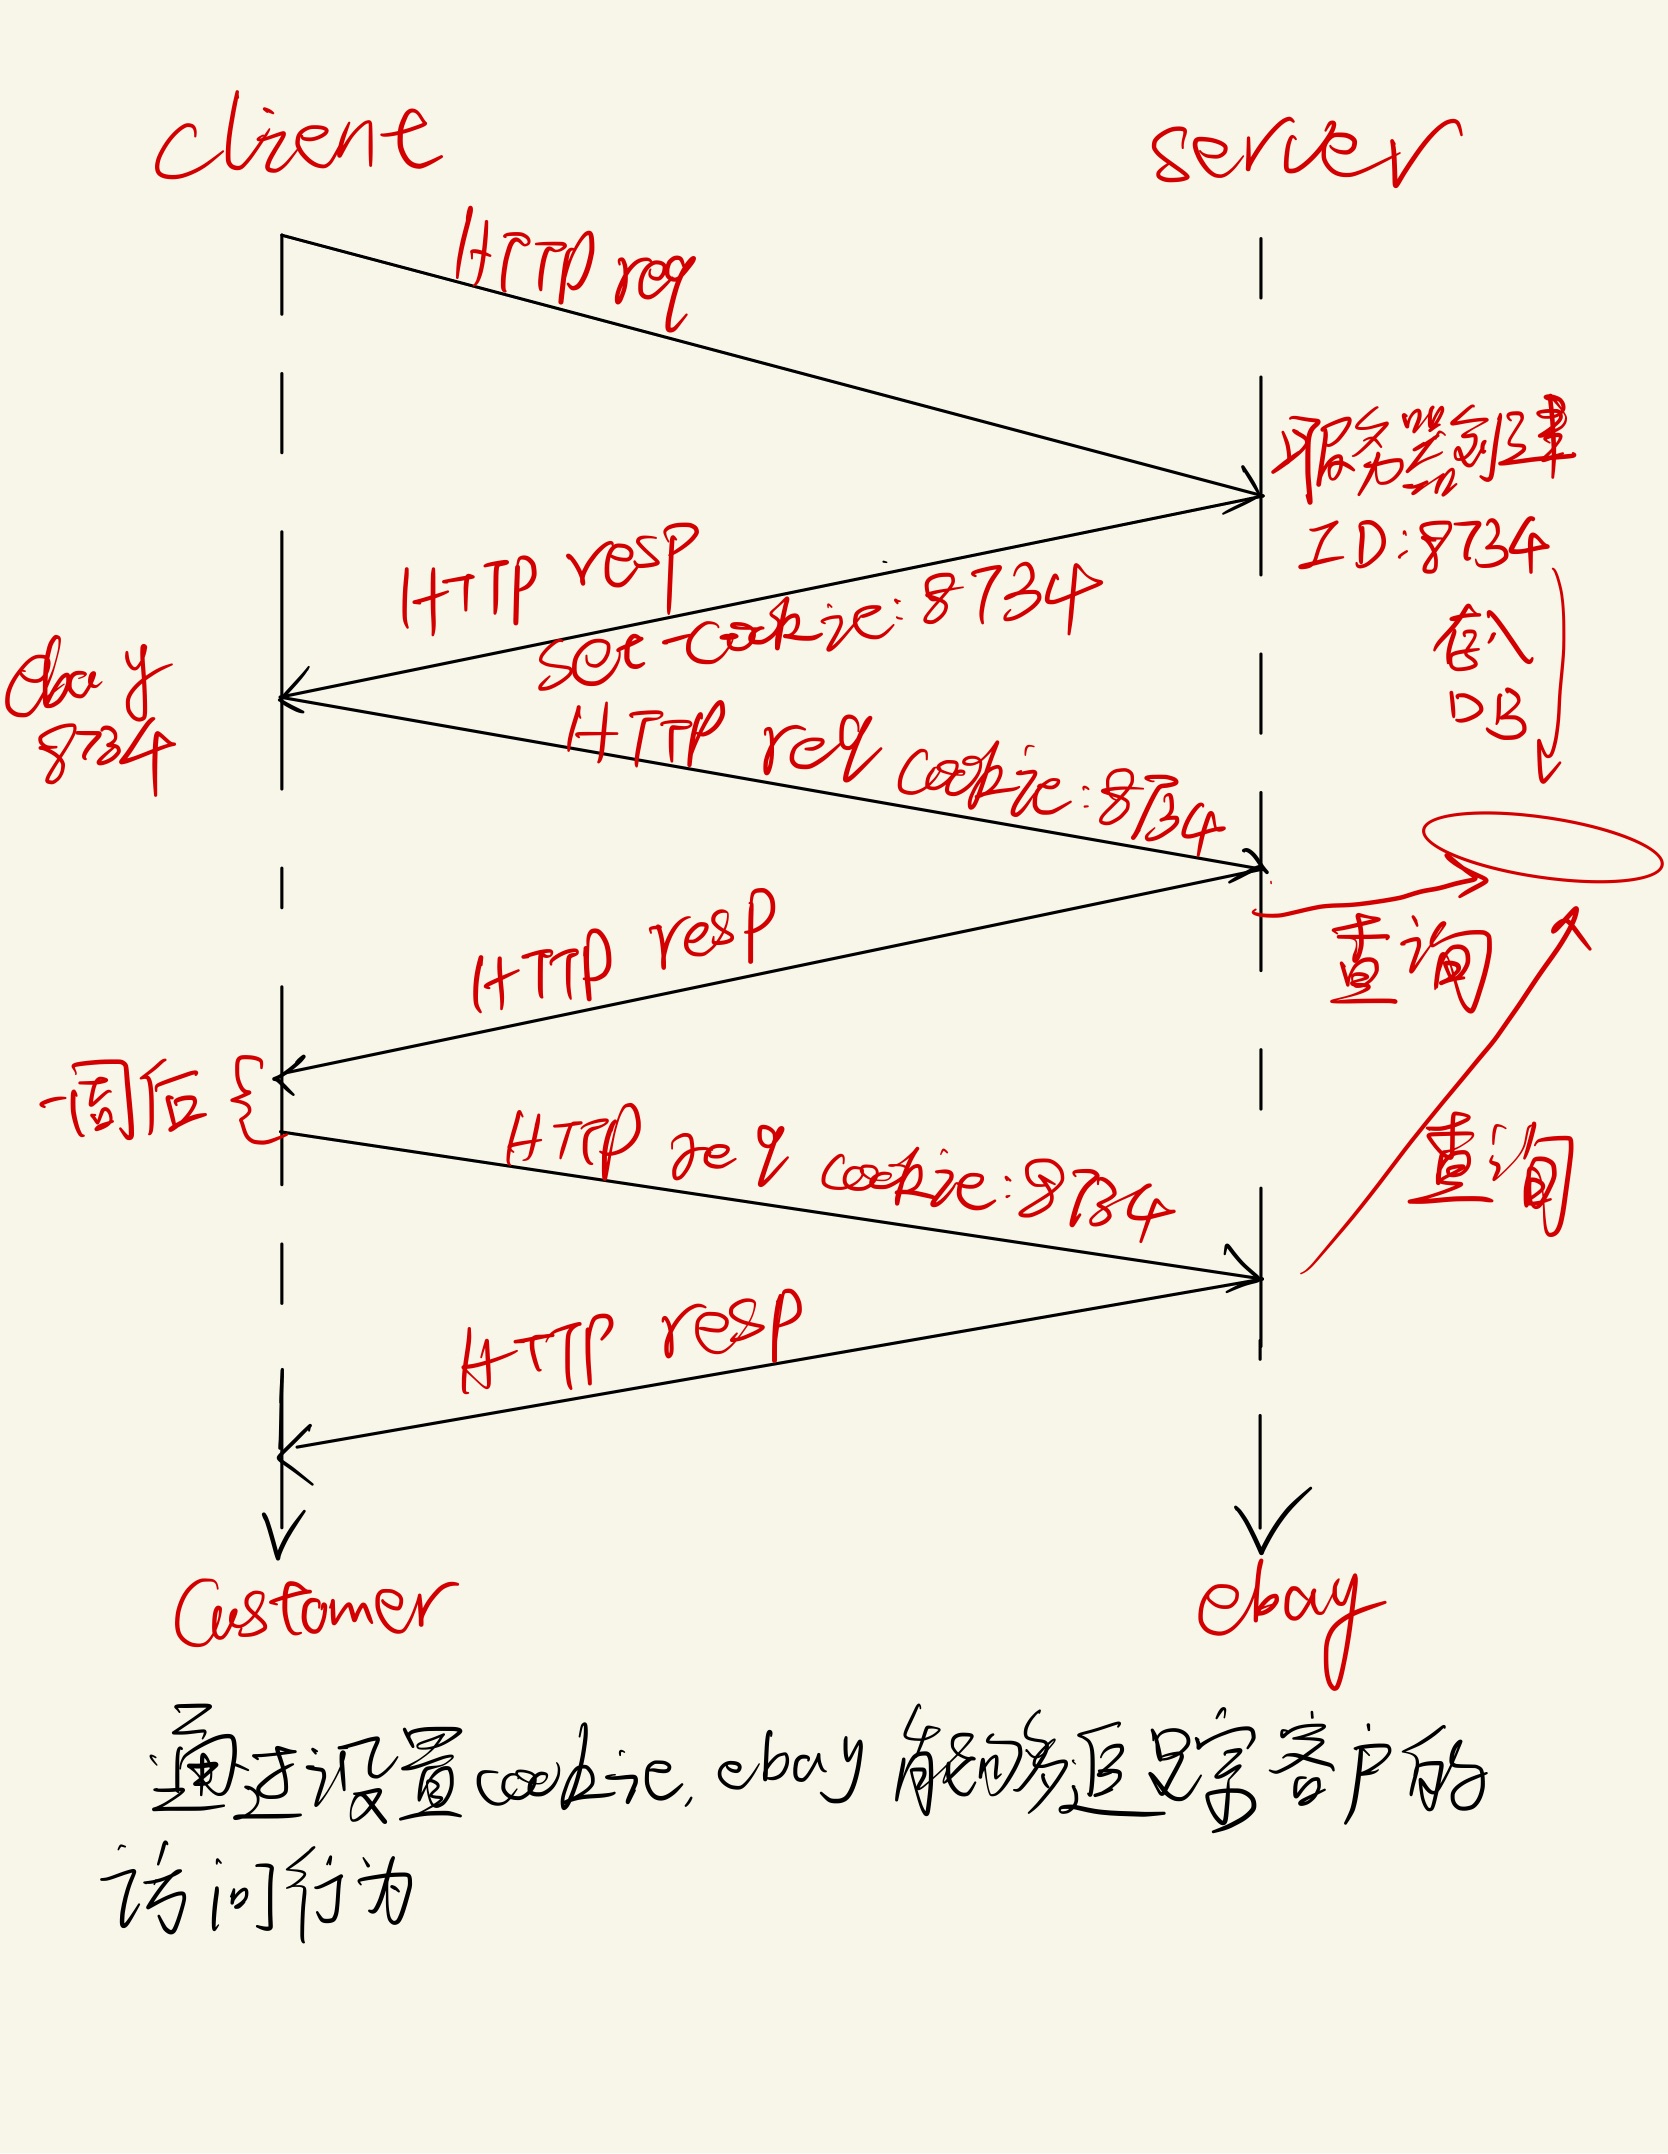 client
server
HTTP req
服务器创建
ID:8734
存入
DB
HTTP resp
set-cookie:8734
ebay
8734
HTTP req cookie:8734
查询
HTTP resp
一周后
HTTP req cookie:8734
查询
HTTP resp
Customer
ebay
通过设置cookie,ebay能够追踪客户的
访问行为